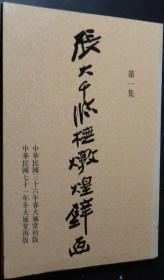 第一集
張大千臨橅燉煌壁画
中華民國三十六年春大風堂初版
中華民國七十一年冬大風堂再版